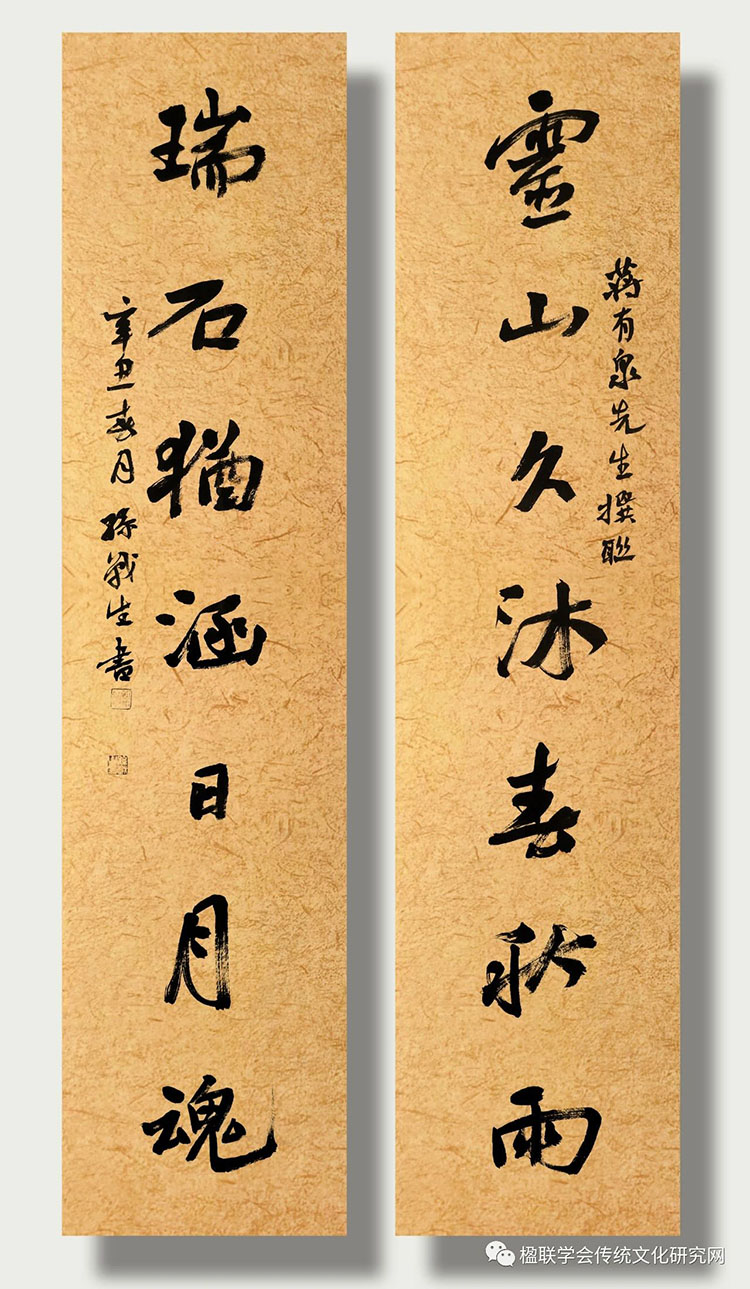 靈山久沐春秋雨
蒋有泉先生撰聯
瑞石猶涵日月魂
辛丑春月孫戰生書
楹联学会传统文化研究网